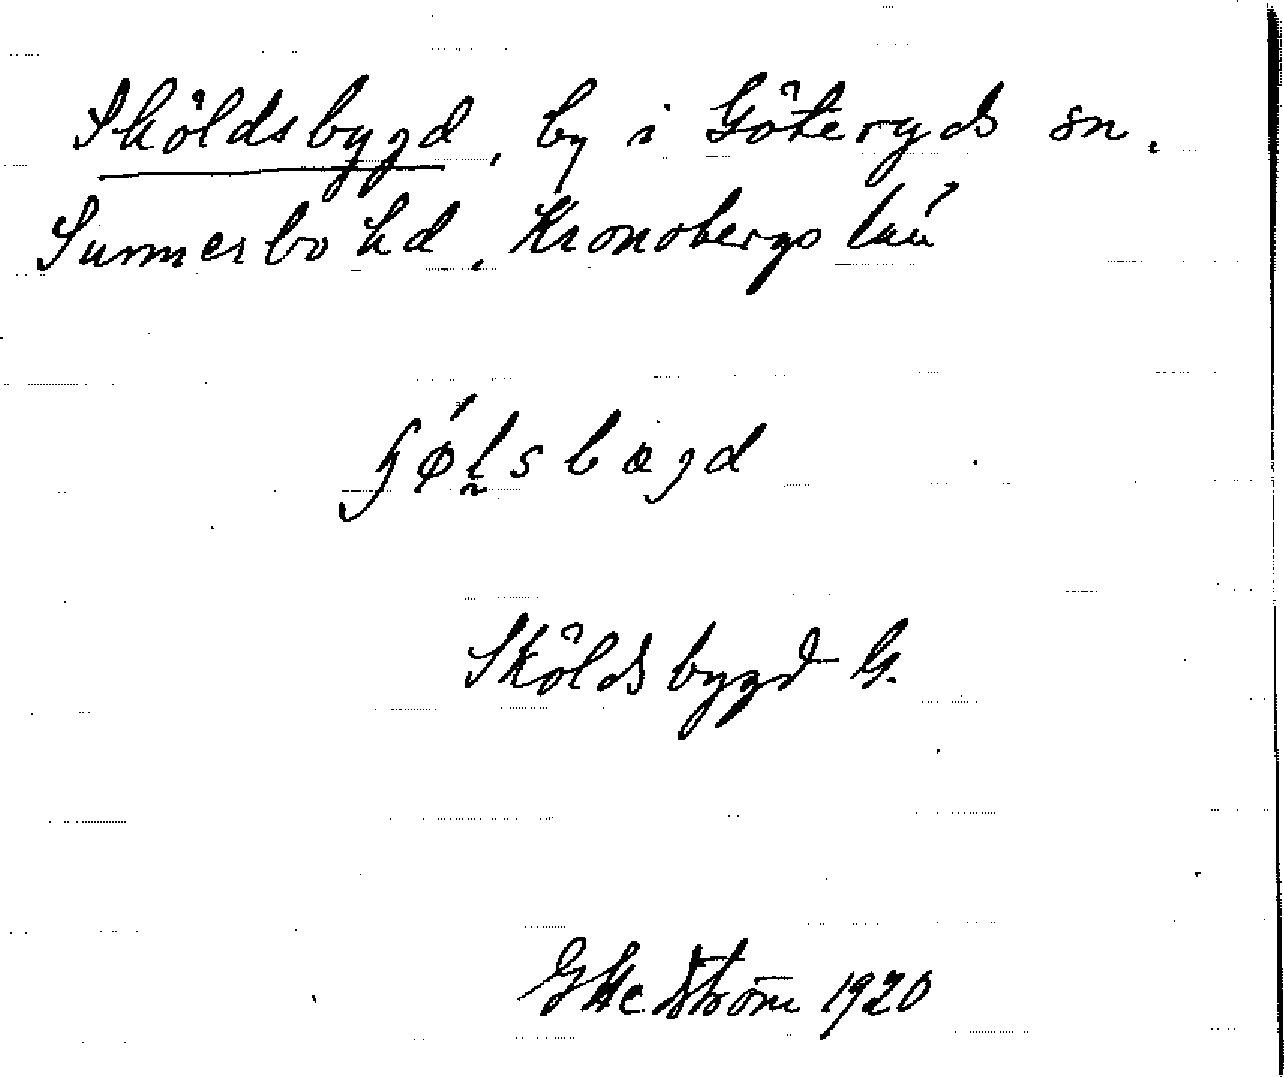 Sköldsbygd, by i Göteryds sn.
Sunnerbo hd, Kronobergs län
Sköldsbygd G.
G Hedström 1920